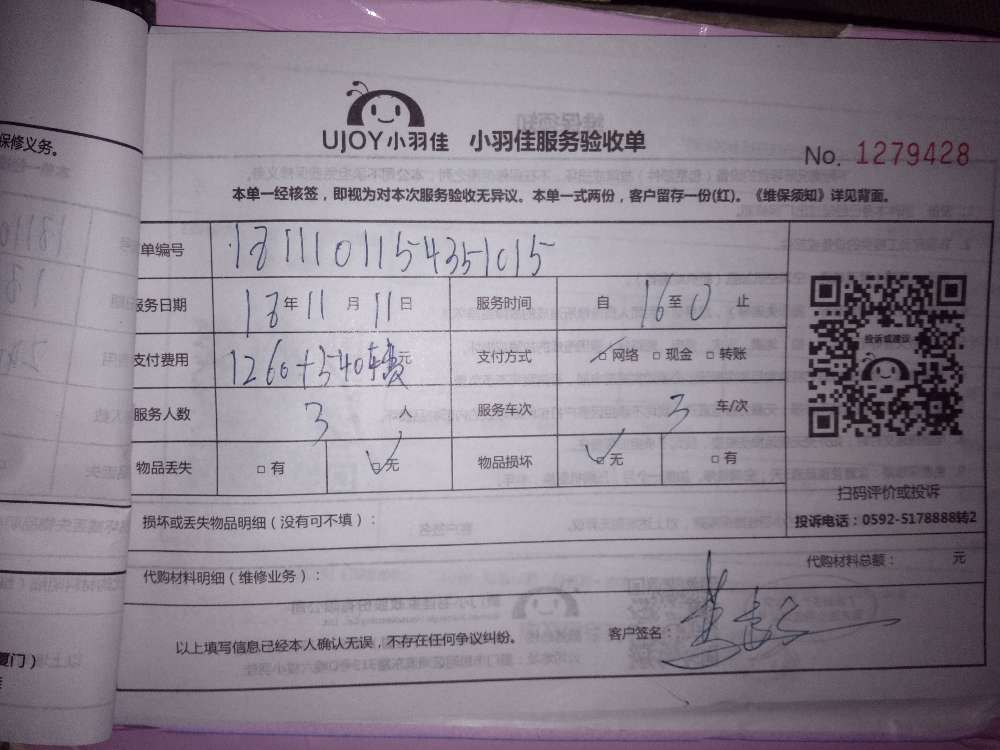 保修义务。
UJOY小羽佳 小羽佳服务验收单
No. 1279428
本单一经核签，即视为对本次服务验收无异议。本单一式两份，客户留存一份(红)。《维保须知》详见背面。
单编号 1811101154351015
服务日期 18年11月11日 服务时间 自16至0止
支付费用 1260+540楼费元 支付方式 □网络 □现金 □转账
投诉或建议
服务人数 3人 服务车次 3车/次
物品丢失 □有 □无 物品损坏 □无 □有
扫码评价或投诉
损坏或丢失物品明细（没有可不填）：
投诉电话：0592-5178888转2
代购材料明细（维修业务）：
代购材料总额： 元
以上填写信息已经本人确认无误，不存在任何争议纠纷。
客户签名：
厦门）